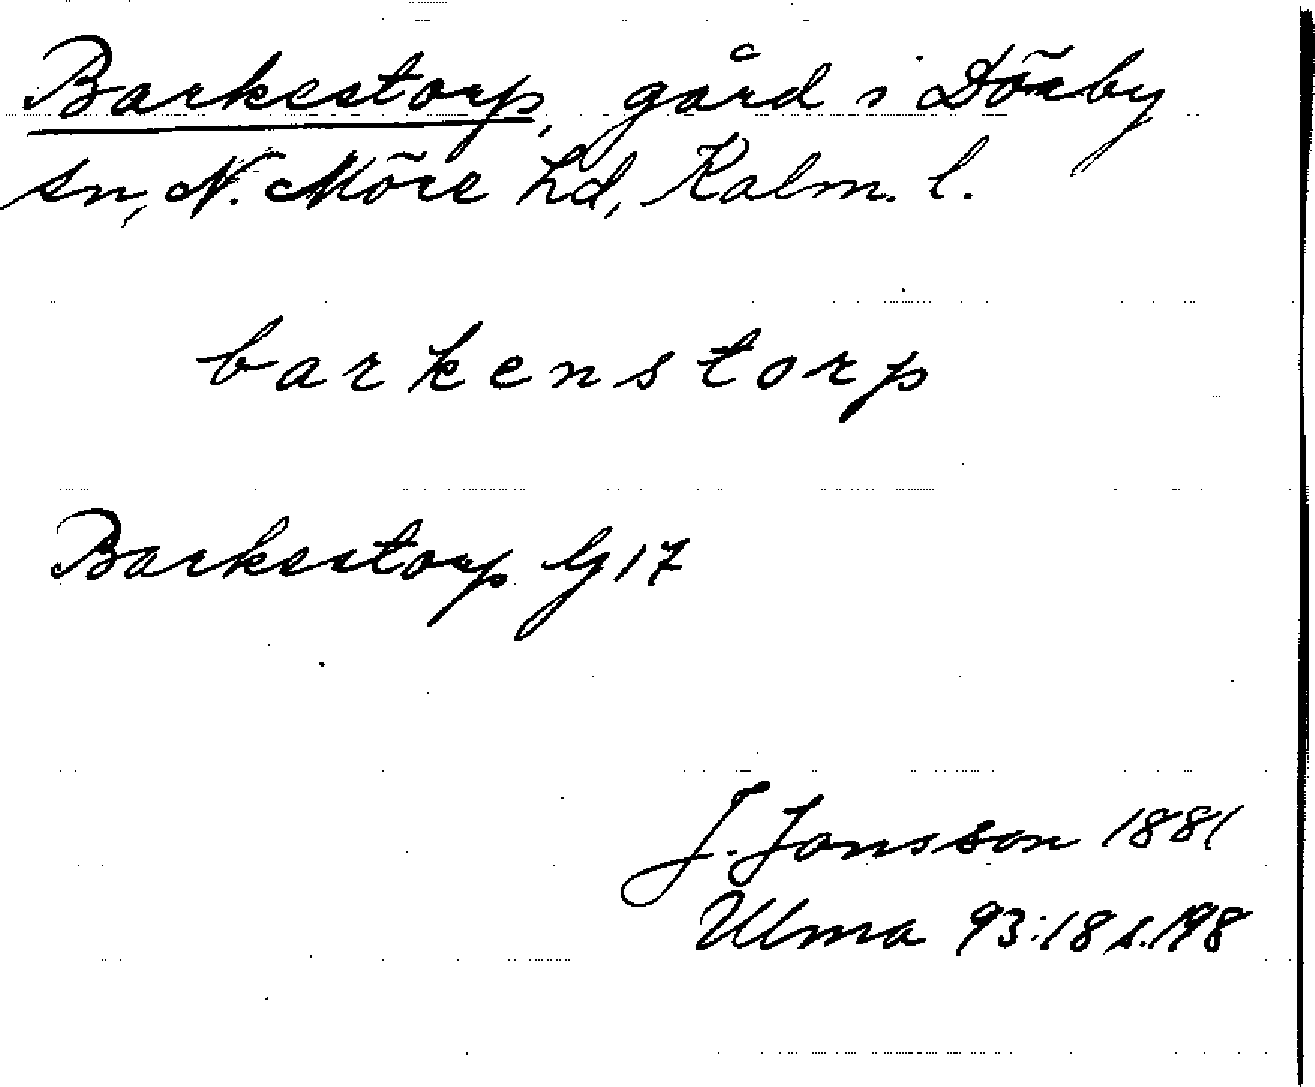 Barkestorp, gård i Dörby
sn, N. Möre hd, Kalm. l.
barkenstorp
Barkestorp G 17
J. Jonsson 1881
Ulma 93:18 s. 198